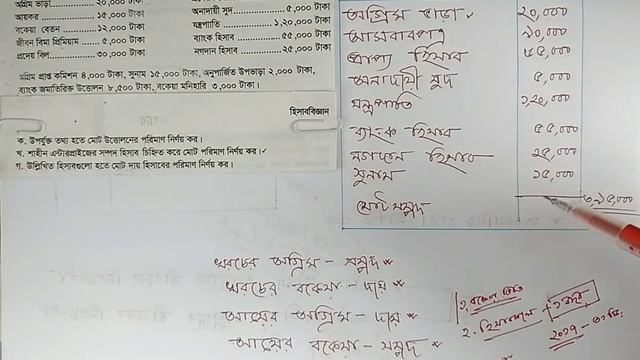 অগ্রিম ভাড়া............২০,০০০ টাকা
আয়কর............১৫,০০০ টাকা
বকেয়া বেতন............১২,০০০ টাকা
জীবন বিমা প্রিমিয়াম......৫,০০০ টাকা
প্রদেয় বিল............৩০,০০০ টাকা
অনাদায়ী সুদ............৫,০০০ টাকা
যন্ত্রপাতি............১,২০,০০০ টাকা
ব্যাংক হিসাব............৫৫,০০০ টাকা
নগদান হিসাব............২৫,০০০ টাকা
অগ্রিম প্রাপ্ত কমিশন ৪,০০০ টাকা, সুনাম ১৫,০০০ টাকা, অনুপার্জিত উপভাড়া ২,০০০ টাকা,
ব্যাংক জমাতিরিক্ত উত্তোলন ৮,৫০০ টাকা, বকেয়া মনিহারি ৩,০০০ টাকা।
হিসাববিজ্ঞান
ক. উপর্যুক্ত তথ্য হতে মোট উত্তোলনের পরিমাণ নির্ণয় কর।
খ. শাহীন এন্টারপ্রাইজের সম্পদ হিসাব চিহ্নিত করে মোট পরিমাণ নির্ণয় কর।
গ. উল্লিখিত হিসাবগুলো হতে মোট দায় হিসাবের পরিমাণ নির্ণয় কর।
অগ্রিম ভাড়া ২০,০০০
আসবাবপত্র ৯০,০০০
প্রাপ্য হিসাব ৫৫,০০০
অনাদায়ী সুদ ৫,০০০
যন্ত্রপাতি ১,২০,০০০
ব্যাংক হিসাব ৫৫,০০০
নগদান হিসাব ২৫,০০০
সুনাম ১৫,০০০
মোট সম্পদ
খরচের অগ্রিম - সম্পদ *
খরচের বকেয়া - দায় *
আয়ের অগ্রিম - দায় *
আয়ের বকেয়া - সম্পদ *